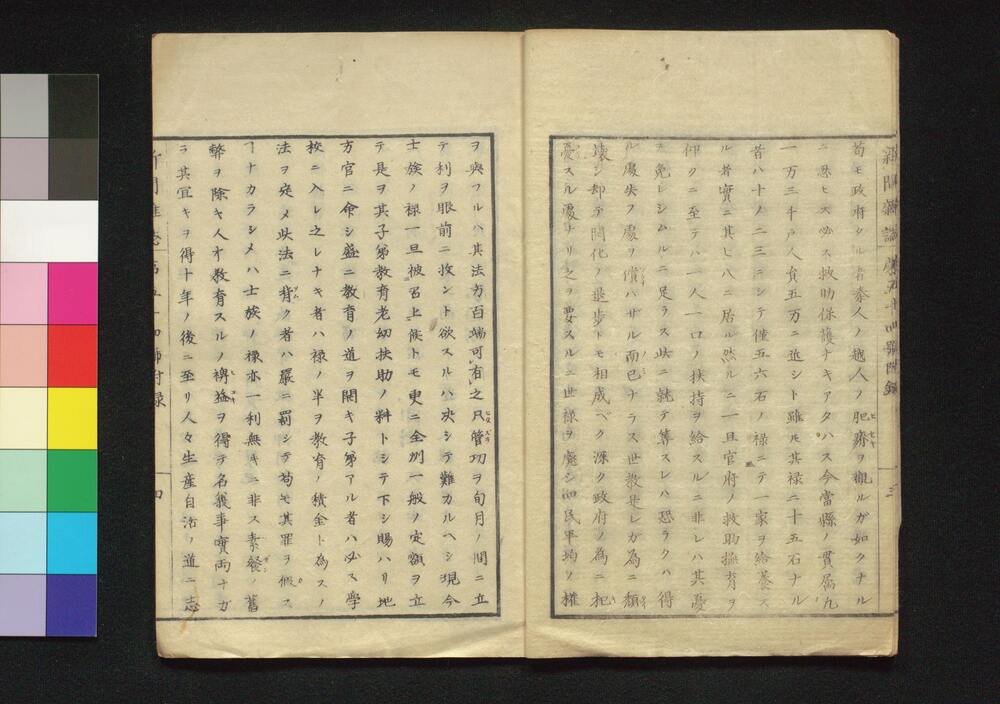 新聞雑誌 第五十四號附録 三
苟モ政府タル者秦人ノ越人ノ肥瘠ヲ視ルガ如クナル
ニ忍ヒス必ス救助保護ナキアタハス今當縣ノ貫属九
一万三千戸人員五万ニ近シト雖モ其禄二十五石ナル
者ハ十ノ二三ニシテ僅五六石ノ禄ニテ一家ヲ給養ス
ル者實ニ其七八ニ居ル然ルニ一旦官府ノ救助撫育ヲ
仰クニ至テハ一人一口ノ扶持ヲ給スルニ非レハ其憂
ヲ免レシムルニ足ラス此ニ就テ算スレハ恐ラクハ得
ル處失フ處ヲ償ハザル而已ナラス世教是レガ為ニ頽
壊シ却テ開化ノ退歩トモ相成ベク深ク政府ノ為ニ杞
憂スル處ナリ之ヲ要スルニ世禄ヲ廃シ四民平均ノ權
ヲ與フルハ其法方百端可有之只管功ヲ旬月ノ間ニ立
テ利ヲ眼前ニ收ント欲スルハ决シテ難カルヘシ現今
士族ノ禄一旦被召上候トモ更ニ全州一般ノ定額ヲ立
テ是ヲ其子弟教育老幼扶助ノ料トシテ下シ賜ハリ地
方官ニ命シ盛ニ教育ノ道ヲ開キ子弟アル者ハ必ス學
校ニ入レ之レナキ者ハ禄ノ半ヲ教育ノ積金ト為スノ
法ヲ定メ此法ニ背ク者ハ嚴ニ罰シテ苟モ其罪ヲ假ス
ーナカラシメハ士族ノ禄亦一利無キニ非ス素餐ノ舊
弊ヲ除キ人才教育スルノ裨益ヲ得テ名義事實両ナガ
ラ其宜キヲ得十年ノ後ニ至リ人々生産自治ノ道ニ志
新聞雑誌 第五十四號附録 四